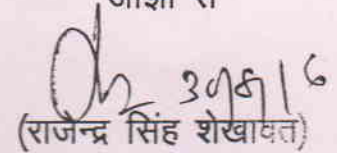 आज्ञा से
30/8/16
(राजेन्द्र सिंह शेखावत)